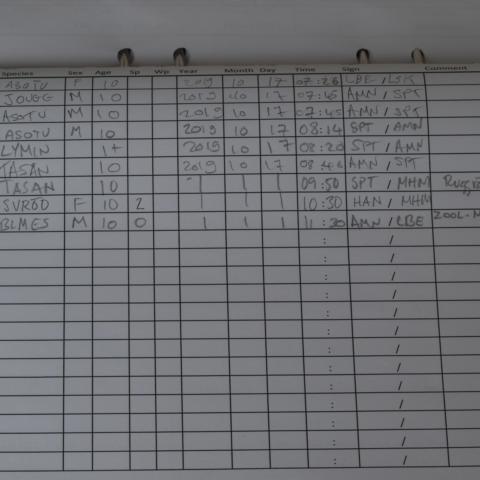 Species Sex Age Sp Wp Year Month Day Time Sign Comment
ASOTU F 10 2019 10 17 07:26 LBE / LSK
JOUGG M 10 2019 10 17 07:45 AMN / SPT
ASOTU M 10 2019 10 17 07:45 AMN / SPT
ASOTU M 10 2019 10 17 08:14 SPT / AMN
LYMIN 1+ 2019 10 17 08:20 SPT / AMN
TASAN 10 2019 10 17 08:46 AMN / SPT
TASAN 10 | | | 09:50 SPT / MHM
SVROD F 10 2 | | | 10:30 HAN / MHM
BLMES M 10 0 | | | 11:30 AMN / LBE ZOOL-M
: /
: /
: /
: /
: /
: /
: /
: /
: /
: /
: /